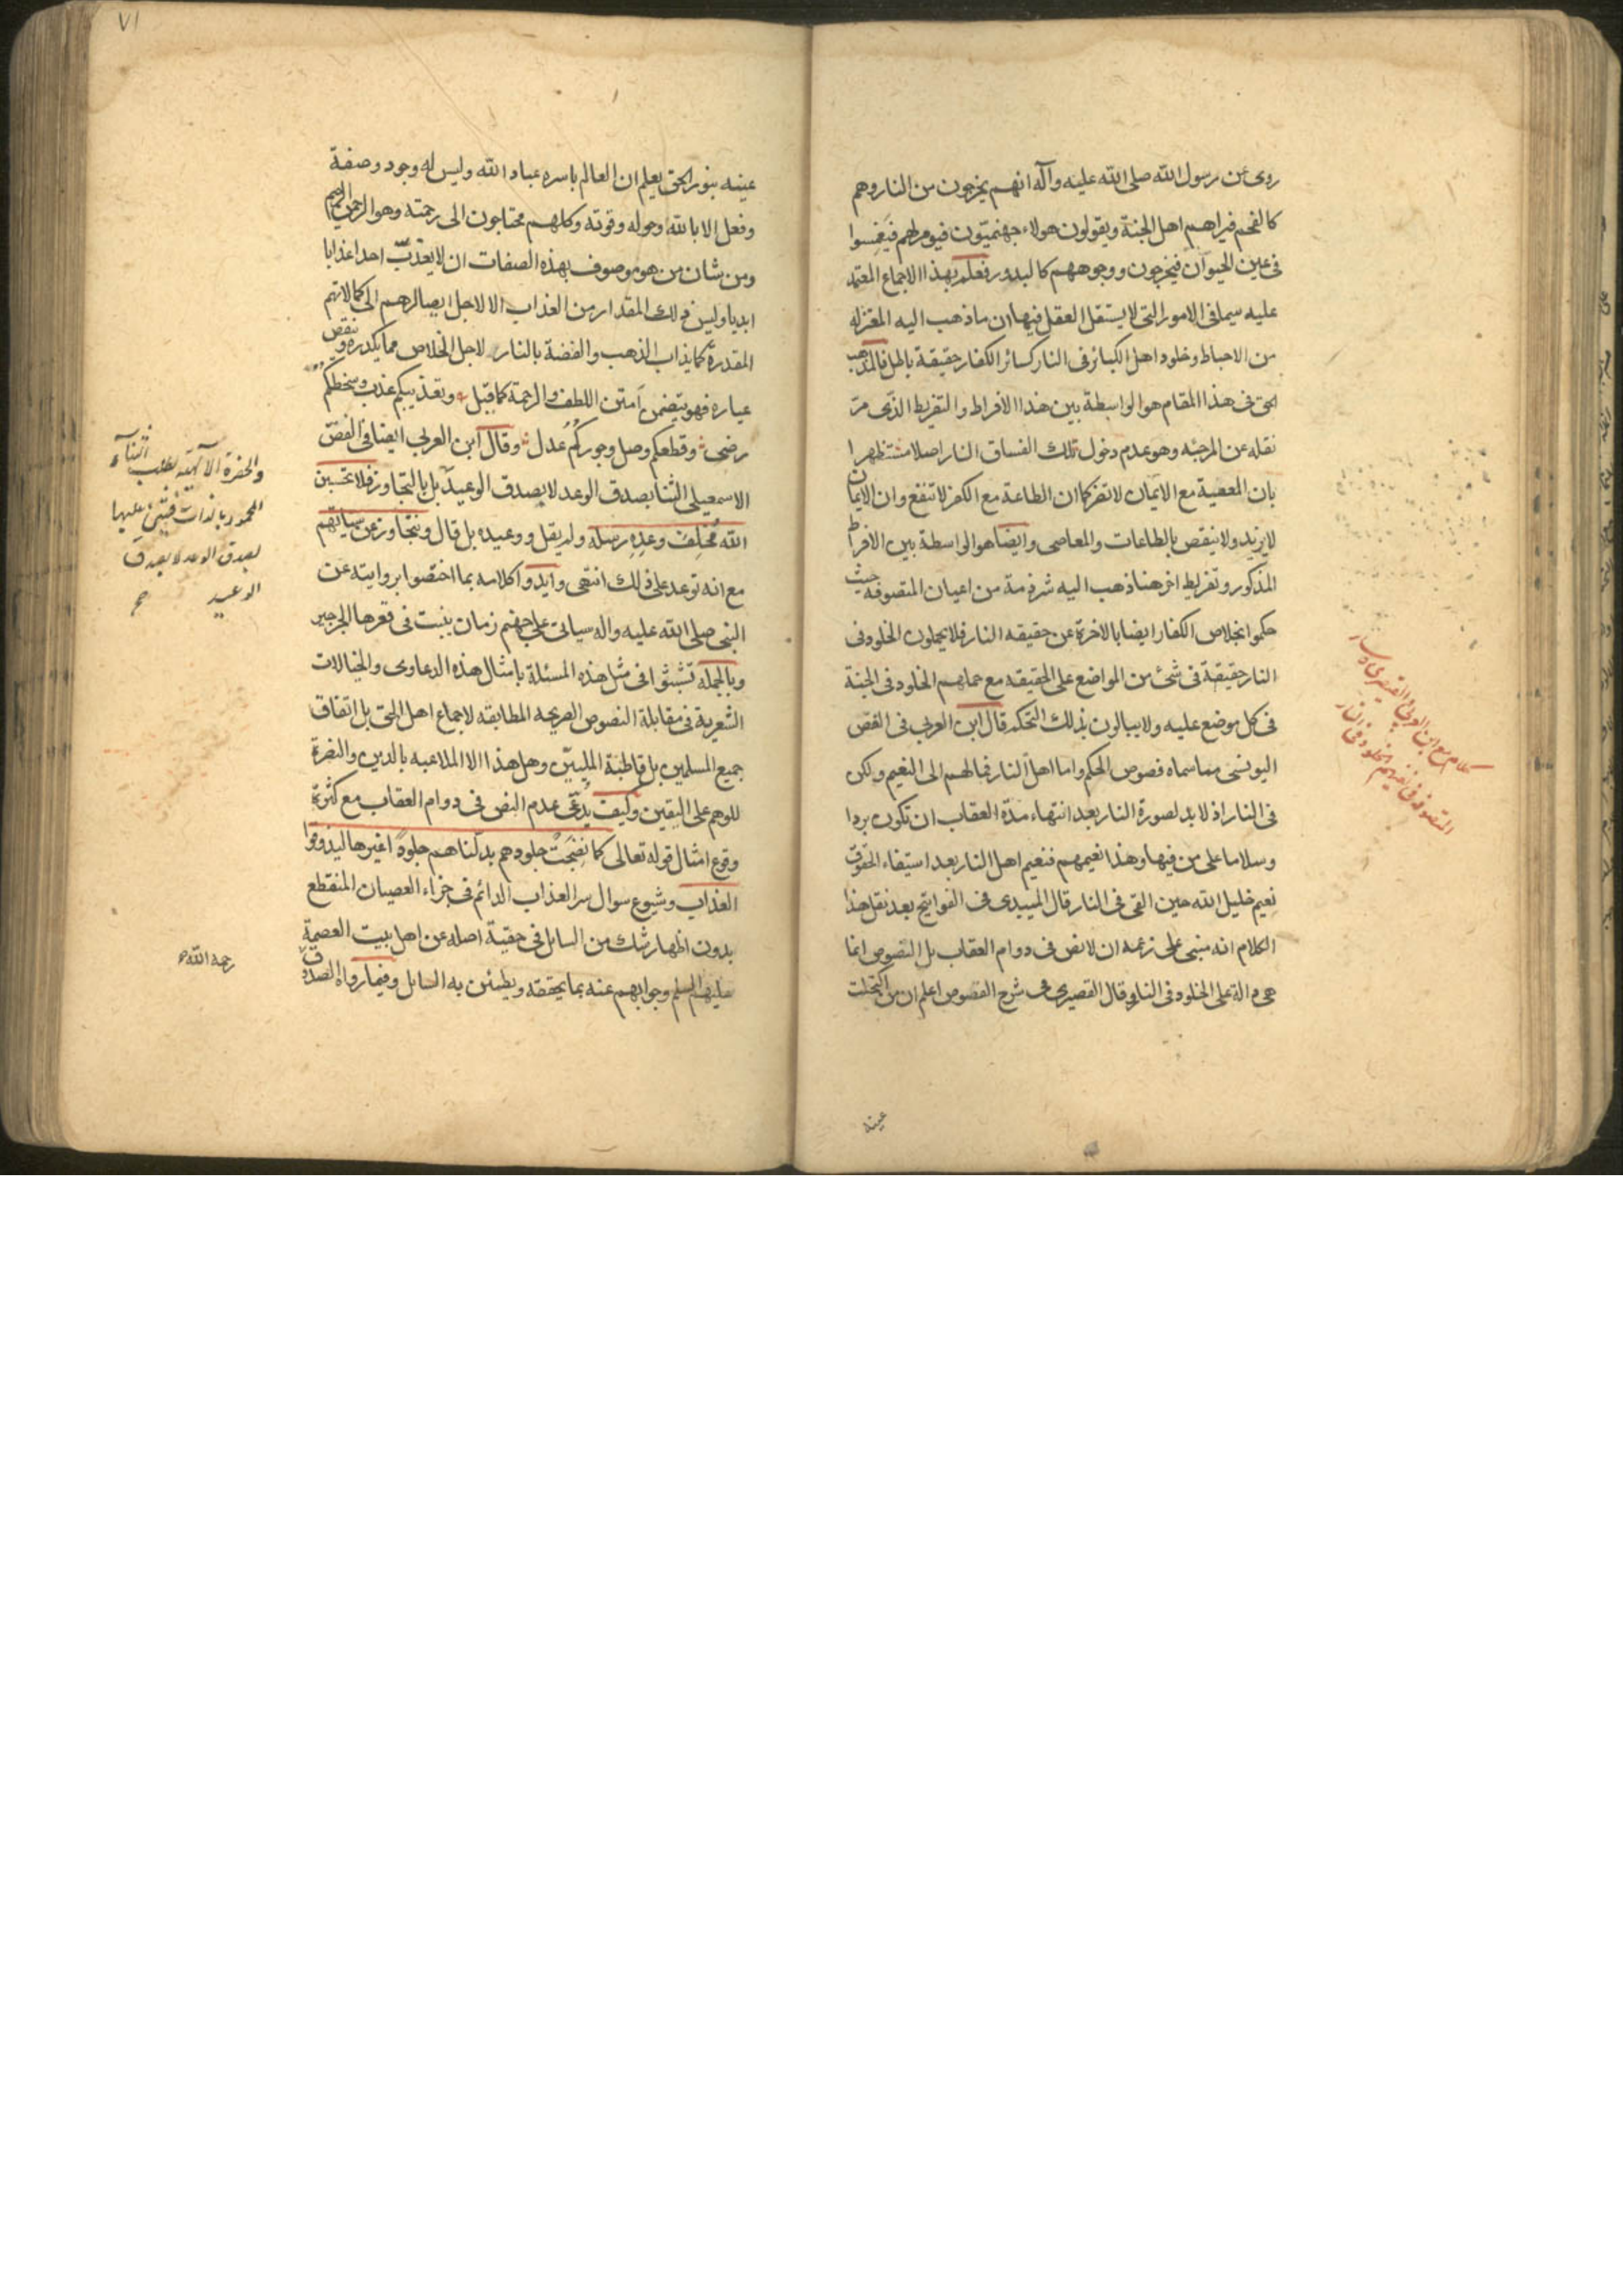 روى عن رسول الله صلى الله عليه وآله انهم يخرجون من النار وهم
كالفحم فيراهم اهل الجنة ويقولون هولاء جهنميّون فيومر بهم فيغمسوا
فى عين الحيوان فيخرجون ووجوههم كالبدور فعلم بهذا الاجماع المعتمد
عليه سيما فى الامور التى لا يستقل العقل فيها ان ما ذهب اليه المعتزله
من الاحباط وخلود اهل الكبائر فى النار كسائر الكفار حقيقة باطل فالمذهب
الحق فى هذا المقام هو الواسطة بين هذا الافراط والتفريط الذى مرّ
نقله عن المرجئه وهو عدم دخول تلك الفساق النار اصلا مستظهرا
بان المعصية مع الايمان لا تضر كما ان الطاعة مع الكفر لا تنفع وان الايمان
لا يزيد ولا ينقص بالطاعات والمعاصى وايضا هو الواسطة بين الافراط
المذكور وتفريط اخر هنا ذهب اليه شرذمة من اعيان المتصوفه حيث
حكموا بخلاص الكفار ايضا بالاخرة عن حقيقه النار فلا يحملون الخلود فى
النار حقيقة فى شئ من المواضع على الحقيقه مع حملهم الخلود فى الجنة
فى كل موضع عليه ولا يبالون بذلك التحكم قال ابن العربى فى الفص
اليونسى مما سماه فصوص الحكم واما اهل النار فمالهم الى النعيم ولكن
فى النار اذ لا بد لصورة النار بعد انتهاء مدّة العقاب ان تكون بردا
وسلاما على من فيها وهذا نعيمهم فنعيم اهل النار بعد استيفاء الحقوق
نعيم خليل الله حين القى فى النار قال الميبدى فى الفواتح بعد نقل هذا
الكلام انه مبنى على زعمه ان لا نص فى دوام العقاب بل النصوص انما
هى دالة على الخلود فى النار وقال القصيرى فى شرح الفصوص اعلم ان من اكتحلت
عينه
كلام مع ابن العربى والقيصرى وسائر
المتصوفه فى نفيهم الخلود فى النار
٧١
عينه بنور الحق يعلم ان العالم باسره عباد الله وليس له وجود وصفة
وفعل الا بالله وحوله وقوته وكلهم محتاجون الى رحمته وهو الرحمن الرحيم
ومن شان من هو موصوف بهذه الصفات ان لا يعذّب احدا عذابا
ابديا وليس ذلك المقدار من العذاب الا لاجل ايصالهم الى كمالاتهم
المقدرة كما يذاب الذهب والفضة بالنار لاجل الخلاص مما يكدره وينقص
عياره فهو يتضمن لمتن اللطف والرحمة كما قيل وتعذيبكم عذب وسخطكم
رضى وقطعكم وصل وجوركم عدل وقال ابن العربى ايضا فى الفصّ
الاسمعيلى الثنا بصدق الوعد لا بصدق الوعيد بل بالتجاوز فلا تحسبن
الله مخلف وعده رسله ولم يقل ووعيده بل قال ونتجاوز عن سياتهم
مع انه توعد على ذلك انتهى وايدوا كلامه بما اختصوا بروايته عن
النبى صلى الله عليه واله سياتى على جهنم زمان ينبت فى قعرها الجرجير
وبالجمله تشبثوا فى مثل هذه المسئلة بامثال هذه الدعاوى والخيالات
الشعرية فى مقابلة النصوص الصريحه المطابقه لاجماع اهل الحق بل اتفاق
جميع المسلمين بل قاطبة المليّين وهل هذا الا الملاعبه بالدين والنصرة
للوهم على اليقين وكيف يدعى عدم النص فى دوام العقاب مع كثرة
وقوع امثال قوله تعالى كلما نضجت جلودهم بدلناهم جلودا غيرها ليذوقوا
العذاب وشيوع سوال سر العذاب الدائم فى جزاء العصيان المنقطع
بدون اظهار شك من السائل فى حقية اصله عن اهل بيت العصمة
عليهم السلم وجوابهم عنه بما يحققه ويطمئن به السايل وفيما رواه الصدوق
والحضرة الالهية تطلب الثناء
المحمود بالذات فيثنى عليها
بصدق الوعد لا بصدق
الوعيد
رحمه الله